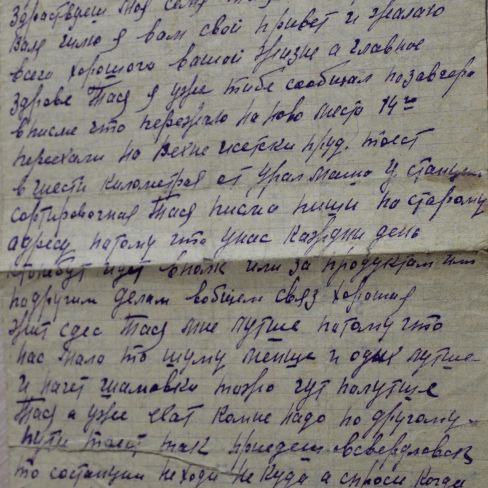 Здраствуеш Тая
Валя шлю я вам свой привет и желаю
всего хорошого вашой жизне а главное
здраве Тася я уже тибе сообщал позавчора
вписме что переехал на ново места 14го
переехали на Верхне исетски пруд. тоест
в шести километрах от уралмаша у станции
сортировочная Тася писма пиши по старому
адресу патому что унас каждни день
идет вполк или за продуктам или
подругим делам вобщем связ хорошая
жит сдес Тася мне лутше патому что
нас мало то шуму менше и одних лутше
и начет шамовки тожо чут полутше
Тася а уже ехат комне надо по другому
пути тоест так приедеш всвердловск
то состанции не ходи не куда а спроси когда